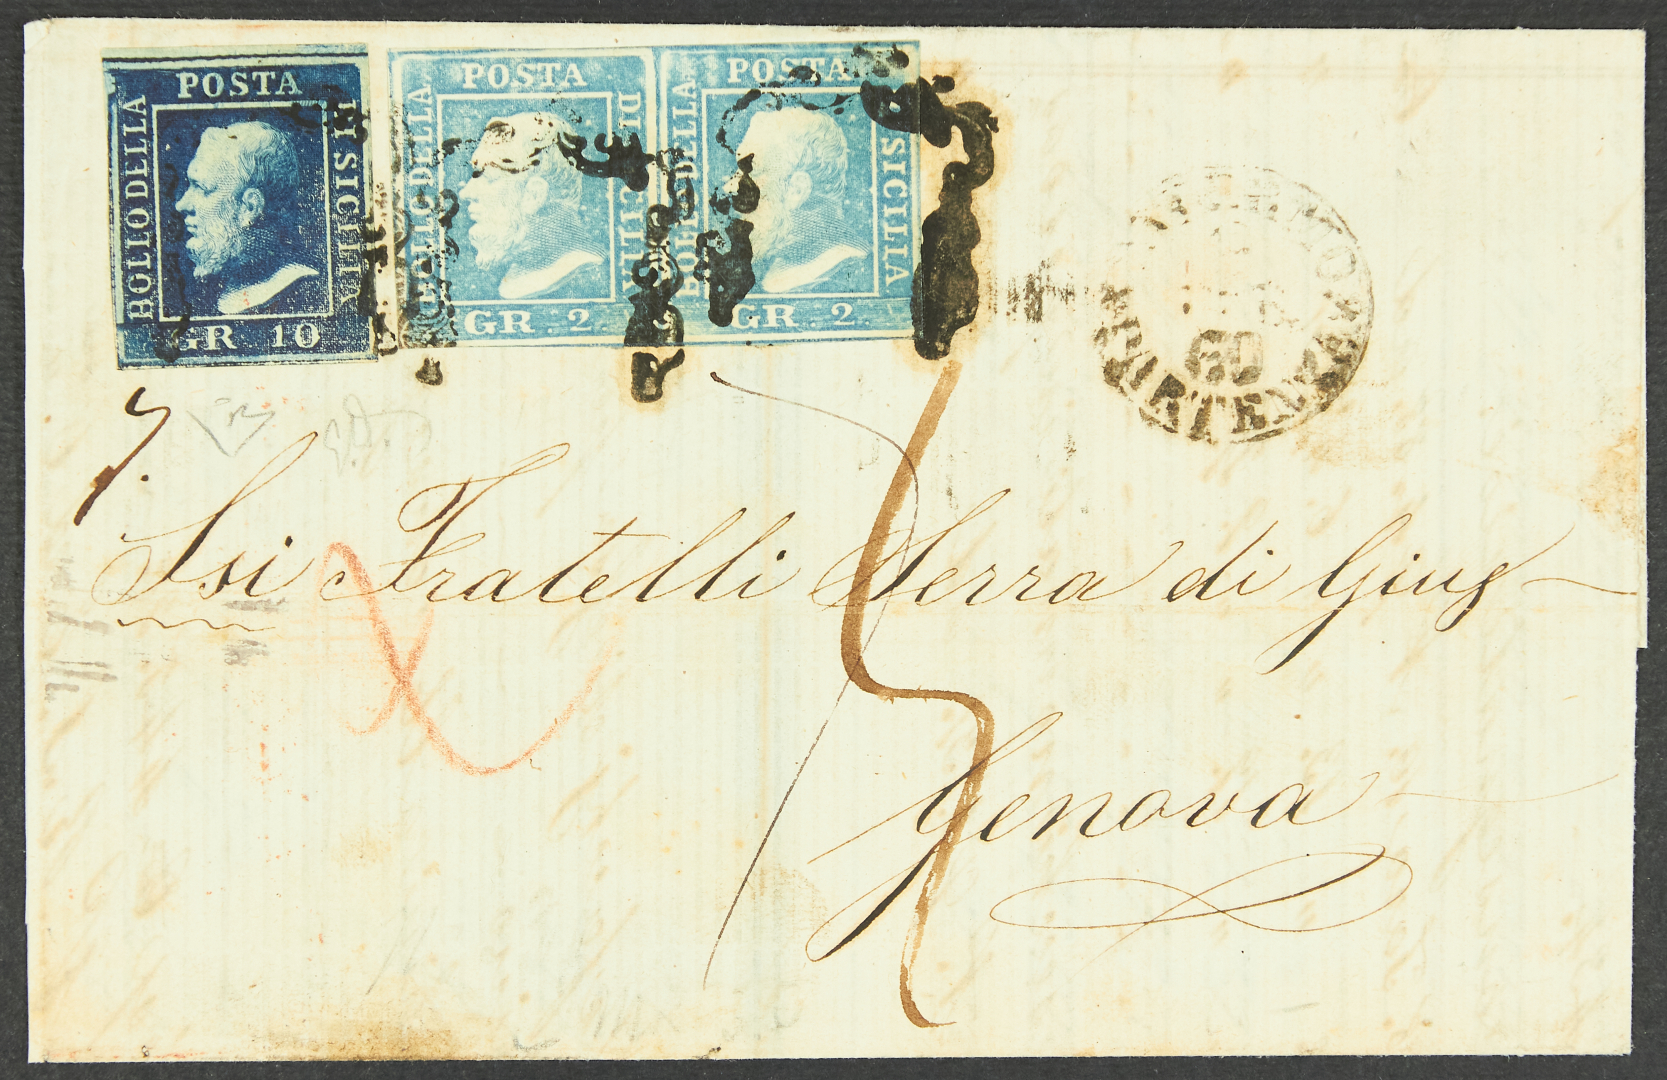 POSTA
BOLLO DELLA
DI SICILIA
GR. 10
POSTA
BOLLO DELLA
DI SICILIA
GR. 2.
POSTA
BOLLO DELLA
DI SICILIA
GR. 2.
60
PARTENZA
Fratelli Serra di Giuse
Genova